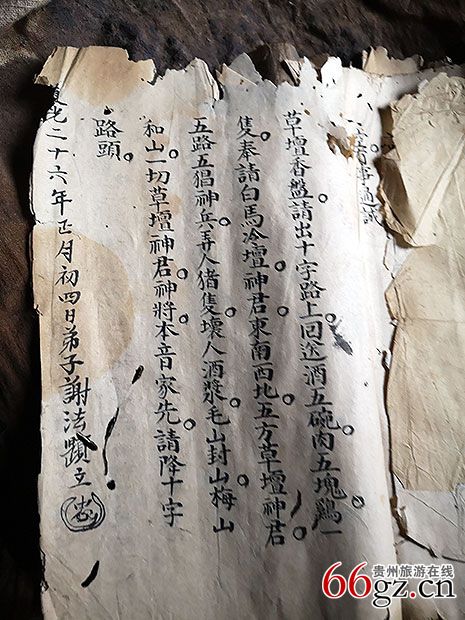 事通試
草壇香盤請出十字路上回送酒五碗肉五塊鷄一
隻奉請白馬冷壇神君東南西北五方草壇神君
五路五猖神兵弄人猪隻壞人酒漿毛山封山梅山
和山一切草壇神君神將本音家先請降十字
路頭
光二十六年正月初四日弟子謝法顕立 忠
贵州旅游在线
66gz.cn